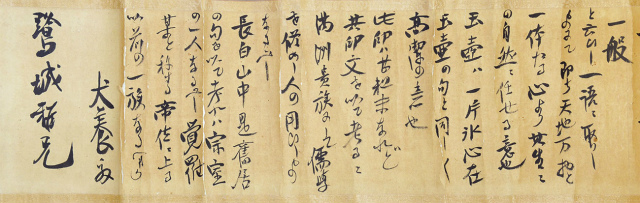 一般
と云ひし一語に取り
よりて即ち天地万物と
一体なる心より其生々
の自然に任せる意也
玉壺ハ一片氷心在
玉壺の句と同しく
高潔の意也
此印ハ甚粗末なれど
其印文を以て考るに
満洲貴族にして儒学
を修の人の用ひしもの
なるべし
長白山中是舊居
の句を以て考れハ宗室
の一人なるべし覚羅
某と称する帝位に上る
以前の一族なるべし
犬養毅
鷺城雅兄